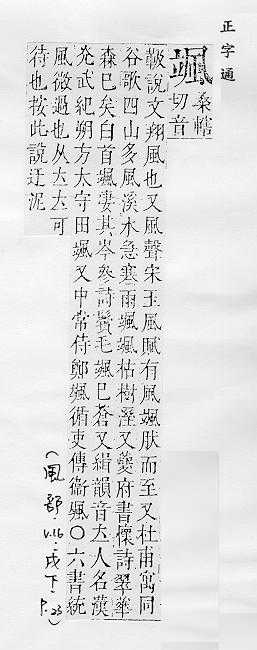 正字通
颯
桑轄
切音
靸說文翔風也又風聲宋玉風賦有風颯肰而至又杜甫寓同
谷歌四山多風溪水急寒雨颯颯枯樹溼又夔府書懷詩翠華
森巳矣白首颯淒其岑參詩鬢毛颯巳蒼又緝韻音立人名漢
光武紀朔方太守田颯又中常侍鄭颯循吏傳衞颯〇六書統
風微過也从立立可
待也按此說迂泥
(風部, V.16-戌下, P.23)